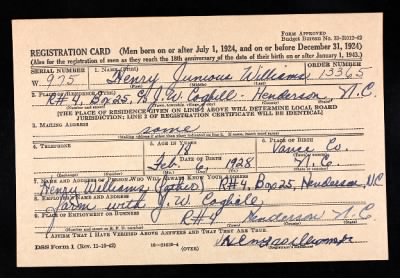 FORM APPROVED
Budget Bureau No. 33-R012-42
REGISTRATION CARD (Men born on or after July 1, 1924, and on or before December 31, 1924)
(Also for the registration of men as they reach the 18th anniversary of the date of their birth on or after January 1, 1943.)
SERIAL NUMBER 1. NAME (Print)
W 975 Henry Junious Williams 13365
(First) (Middle) (Last)
2. PLACE OF RESIDENCE (Print)
R#4, Box 25, C/o J.W. Coghill - Henderson, N.C.
[THE PLACE OF RESIDENCE GIVEN ON LINE 2 ABOVE WILL DETERMINE LOCAL BOARD
JURISDICTION; LINE 2 OF REGISTRATION CERTIFICATE WILL BE IDENTICAL]
3. MAILING ADDRESS
same
[Mailing address if other than place indicated on line 2. If same, insert word same]
4. TELEPHONE 5. AGE IN YEARS 6. PLACE OF BIRTH
18 Vance Co.
DATE OF BIRTH
Feb. 6, 1928 N.C.
7. NAME AND ADDRESS OF PERSON WHO WILL ALWAYS KNOW YOUR ADDRESS
Henry Williams (father) R#4, Box 25, Henderson, N.C
8. EMPLOYER'S NAME AND ADDRESS
farm with J.W. Coghill
9. PLACE OF EMPLOYMENT OR BUSINESS
R#4 Henderson N.C.
I AFFIRM THAT I HAVE VERIFIED ABOVE ANSWERS AND THAT THEY ARE TRUE.
DSS Form 1 (Rev. 11-16-42) (OVER)